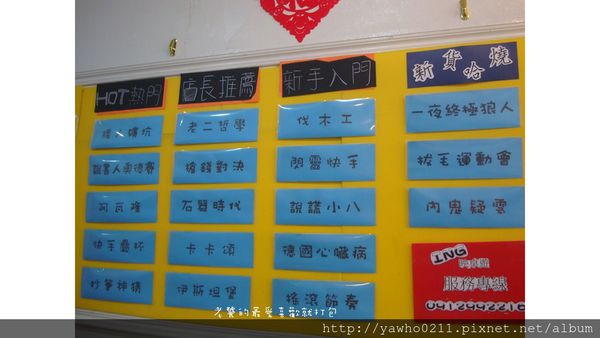 HOT熱門
店長推薦
新手入門
新貨哈燒
矮人礦坑
老二哲學
伐木工
一夜終極狼人
說書人奧德賽
搶錢對決
閃靈快手
拔毛運動會
阿瓦隆
石器時代
說謊小八
內鬼疑雲
快手疊杯
卡卡頌
德國心臟病
妙筆神猜
伊斯坦堡
搖滾節奏
ING
玩桌遊
服務專線
老饕的最愛喜歡就打包
http://yawho0211.pixnet.net/album